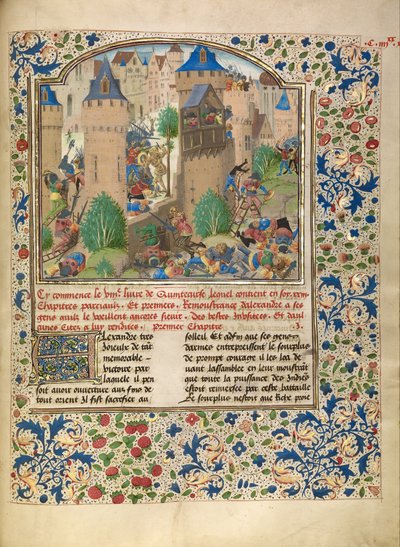 Cy commence le viiie livre de Quinte curse lequel contient en soy. xxvi
Chapitres parciaulx. Et premiers. Remonstrance dalexandre a ses
gens quilz le vueillent encores sieuir. Des bestes Et daul
cunes citez a luy rendues. premier Chapitre .i.
Alexandre tres
joieulx de tant
memorable
victoire par
laquele il pen
soit avoir ouverture aux fins de
tout orient Il fist sacrifier au
soleil Et adfin que ses gens
darmes entrepreissent le sourplus
de prompt courage il les loa de
uant lassamblee en leur monstrant
que toute la puissance des Indiens
estoit renversee par ceste bataille
Le sourplus nestoit que riche proie